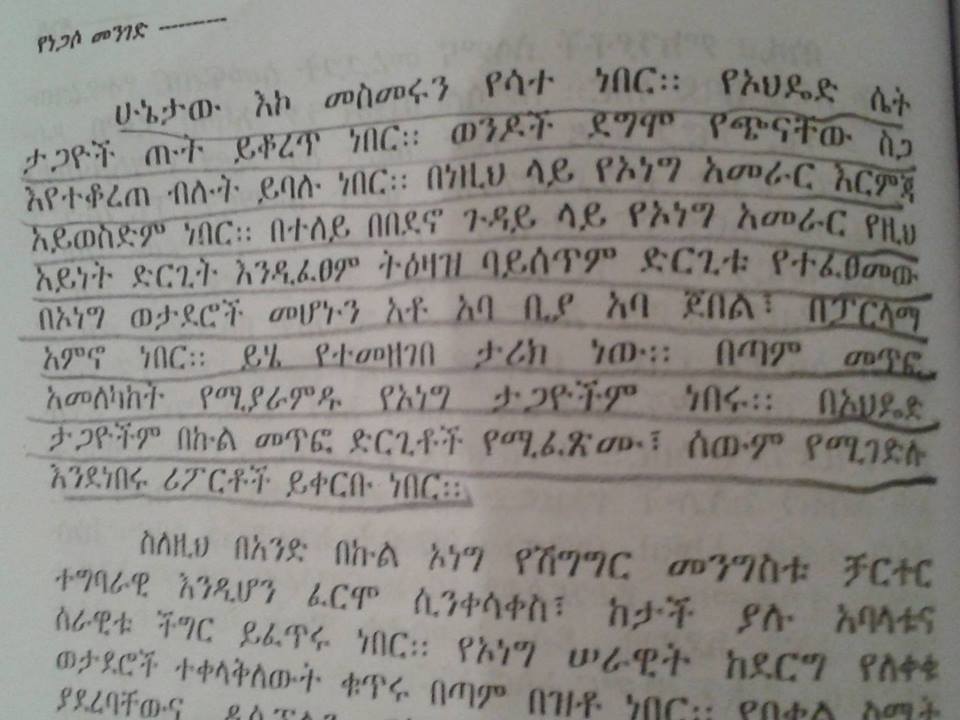 የነጋሶ መንገድ ---------
ሁኔታው እኮ መስመሩን የሳተ ነበር። የኦህዴድ ሴት
ታጋዮች ጡት ይቆረጥ ነበር። ወንዶች ደግሞ የጭናቸው ስጋ
እየተቆረጠ ብሉት ይባሉ ነበር። በነዚህ ላይ የኦነግ አመራር እርምጃ
አይወስድም ነበር። በተለይ በበደኖ ጉዳይ ላይ የኦነግ አመራር የዚህ
አይነት ድርጊት እንዲፈፀም ትዕዛዝ ባይሰጥም ድርጊቱ የተፈፀመው
በኦነግ ወታደሮች መሆኑን አቶ አባ ቢያ አባ ጆበል፣ በፓርላማ
አምኖ ነበር። ይሄ የተመዘገበ ታሪክ ነው። በጣም መጥፎ
አመለካከት የሚያራምዱ የኦነግ ታጋዮችም ነበሩ። በኦህዴድ
ታጋዮችም በኩል መጥፎ ድርጊቶች የሚፈጽሙ፣ ሰውም የሚገድሉ
እንደነበሩ ሪፖርቶች ይቀርቡ ነበር።
ስለዚህ በአንድ በኩል ኦነግ የሽግግር መንግስቱ ቻርተር
ተግባራዊ እንዲሆን ፈርሞ ሲንቀሳቀስ፣ ከታች ያሉ አባላቱና
ሰራዊቱ ችግር ይፈጥሩ ነበር። የኦነግ ሠራዊት ከደርግ የለቀቁ
ወታደሮች ተቀላቅለውት ቁጥሩ በጣም በዝቶ ነበር። የበቀል ስሜት
ያደረባቸውና